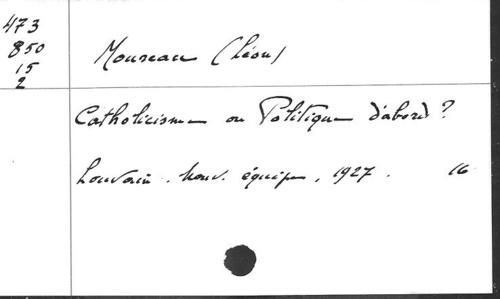 473
850
15
2
Moureau (Léon)
Catholicisme ou Politique d'abord?
Louvain. Nouv. équipe, 1927. 16